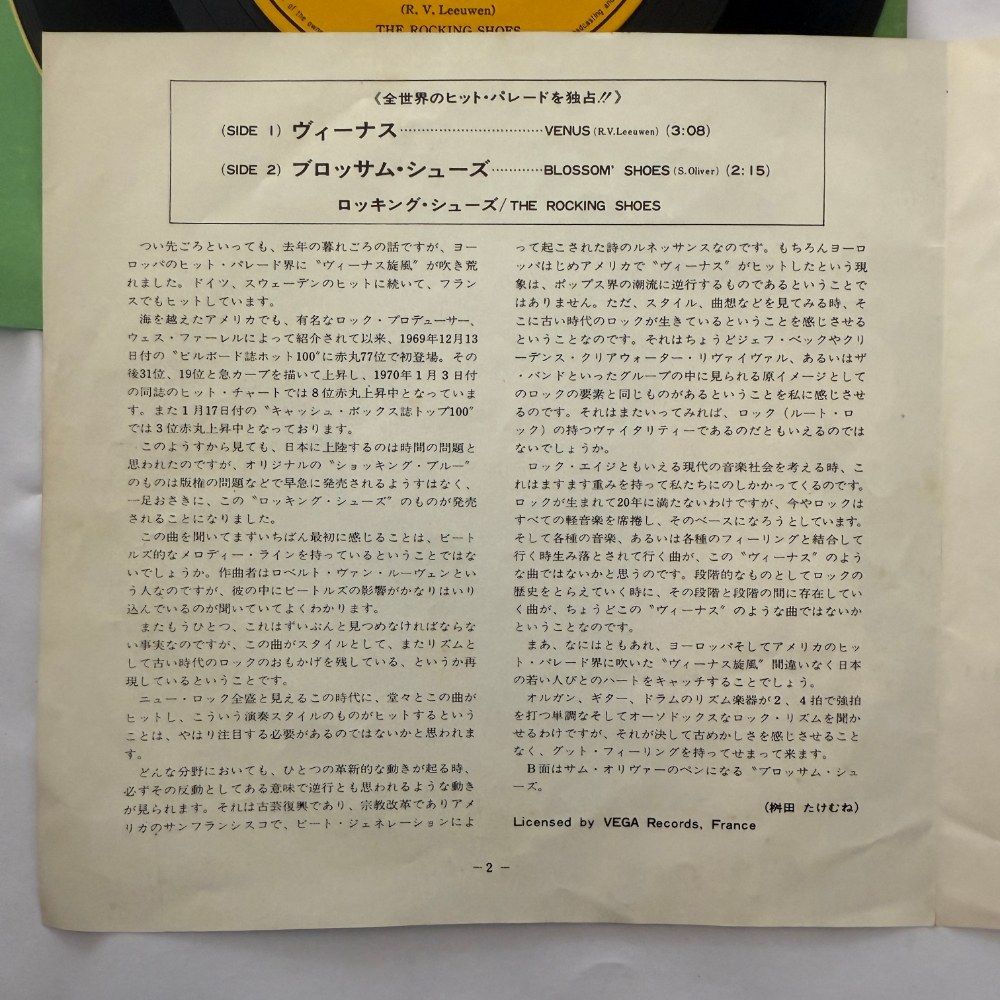 (R. V. Leeuwen)
THE ROCKING SHOES
《全世界のヒット・パレードを独占!!》
(SIDE 1) ヴィーナス……………………………VENUS (R.V.Leeuwen) (3:08)
(SIDE 2) ブロッサム・シューズ…………BLOSSOM' SHOES (S.Oliver) (2:15)
ロッキング・シューズ/THE ROCKING SHOES
つい先ごろといっても、去年の暮れごろの話ですが、ヨー
ロッパのヒット・パレード界に〝ヴィーナス旋風〟が吹き荒
れました。ドイツ、スウェーデンのヒットに続いて、フラン
スでもヒットしています。
海を越えたアメリカでも、有名なロック・プロデューサー、
ウェス・ファーレルによって紹介されて以来、1969年12月13
日付の〝ビルボード誌ホット100〟に赤丸77位で初登場。その
後31位、19位と急カーブを描いて上昇し、1970年1月3日付
の同誌のヒット・チャートでは8位赤丸上昇中となっていま
す。また1月17日付の〝キャッシュ・ボックス誌トップ100〟
では3位赤丸上昇中となっております。
このようすから見ても、日本に上陸するのは時間の問題と
思われたのですが、オリジナルの〝ショッキング・ブルー〟
のものは版権の問題などで早急に発売されるようすはなく、
一足おさきに、この〝ロッキング・シューズ〟のものが発売
されることになりました。
この曲を聞いてまずいちばん最初に感じることは、ビート
ルズ的なメロディー・ラインを持っているということではな
いでしょうか。作曲者はロベルト・ヴァン・ルーヴェンとい
う人なのですが、彼の中にビートルズの影響がかなりはいり
込んでいるのが聞いていてよくわかります。
またもうひとつ、これはずいぶんと見つめなければならな
い事実なのですが、この曲がスタイルとして、またリズムと
して古い時代のロックのおもかげを残している、というか再
現しているということです。
ニュー・ロック全盛と見えるこの時代に、堂々とこの曲が
ヒットし、こういう演奏スタイルのものがヒットするという
ことは、やはり注目する必要があるのではないかと思われま
す。
どんな分野においても、ひとつの革新的な動きが起る時、
必ずその反動としてある意味で逆行とも思われるような動き
が見られます。それは古芸復興であり、宗教改革でありアメ
リカのサンフランシスコで、ビート・ジェネレーションによ
って起こされた詩のルネッサンスなのです。もちろんヨーロ
ッパはじめアメリカで〝ヴィーナス〟がヒットしたという現
象は、ポップス界の潮流に逆行するものであるということで
はありません。ただ、スタイル、曲想などを見てみる時、そ
こに古い時代のロックが生きているということを感じさせる
ということなのです。それはちょうどジェフ・ベックやクリ
ーデンス・クリアウォーター・リヴァイヴァル、あるいはザ
・バンドといったグループの中に見られる原イメージとして
のロックの要素と同じものがあるということを私に感じさせ
るのです。それはまたいってみれば、ロック（ルート・ロ
ック）の持つヴァイタリティーであるのだともいえるのでは
ないでしょうか。
ロック・エイジともいえる現代の音楽社会を考える時、こ
れはますます重みを持って私たちにのしかかってくるのです。
ロックが生まれて20年に満たないわけですが、今やロックは
すべての軽音楽を席捲し、そのベースになろうとしています。
そして各種の音楽、あるいは各種のフィーリングと結合して
行く時生み落とされて行く曲が、この〝ヴィーナス〟のよう
な曲ではないかと思うのです。段階的なものとしてロックの
歴史をとらえていく時に、その段階と段階の間に存在してい
く曲が、ちょうどこの〝ヴィーナス〟のような曲ではないか
ということなのです。
まあ、なにはともあれ、ヨーロッパそしてアメリカのヒッ
ト・パレード界に吹いた〝ヴィーナス旋風〟間違いなく日本
の若い人びとのハートをキャッチすることでしょう。
オルガン、ギター、ドラムのリズム楽器が2、4拍で強拍
を打つ単調なそしてオーソドックスなロック・リズムを聞か
せるわけですが、それが決して古めかしさを感じさせること
なく、グット・フィーリングを持ってせまって来ます。
B面はサム・オリヴァーのペンになる〝ブロッサム・シュ
ーズ。
（桝田 たけむね）
Licensed by VEGA Records, France
－2－